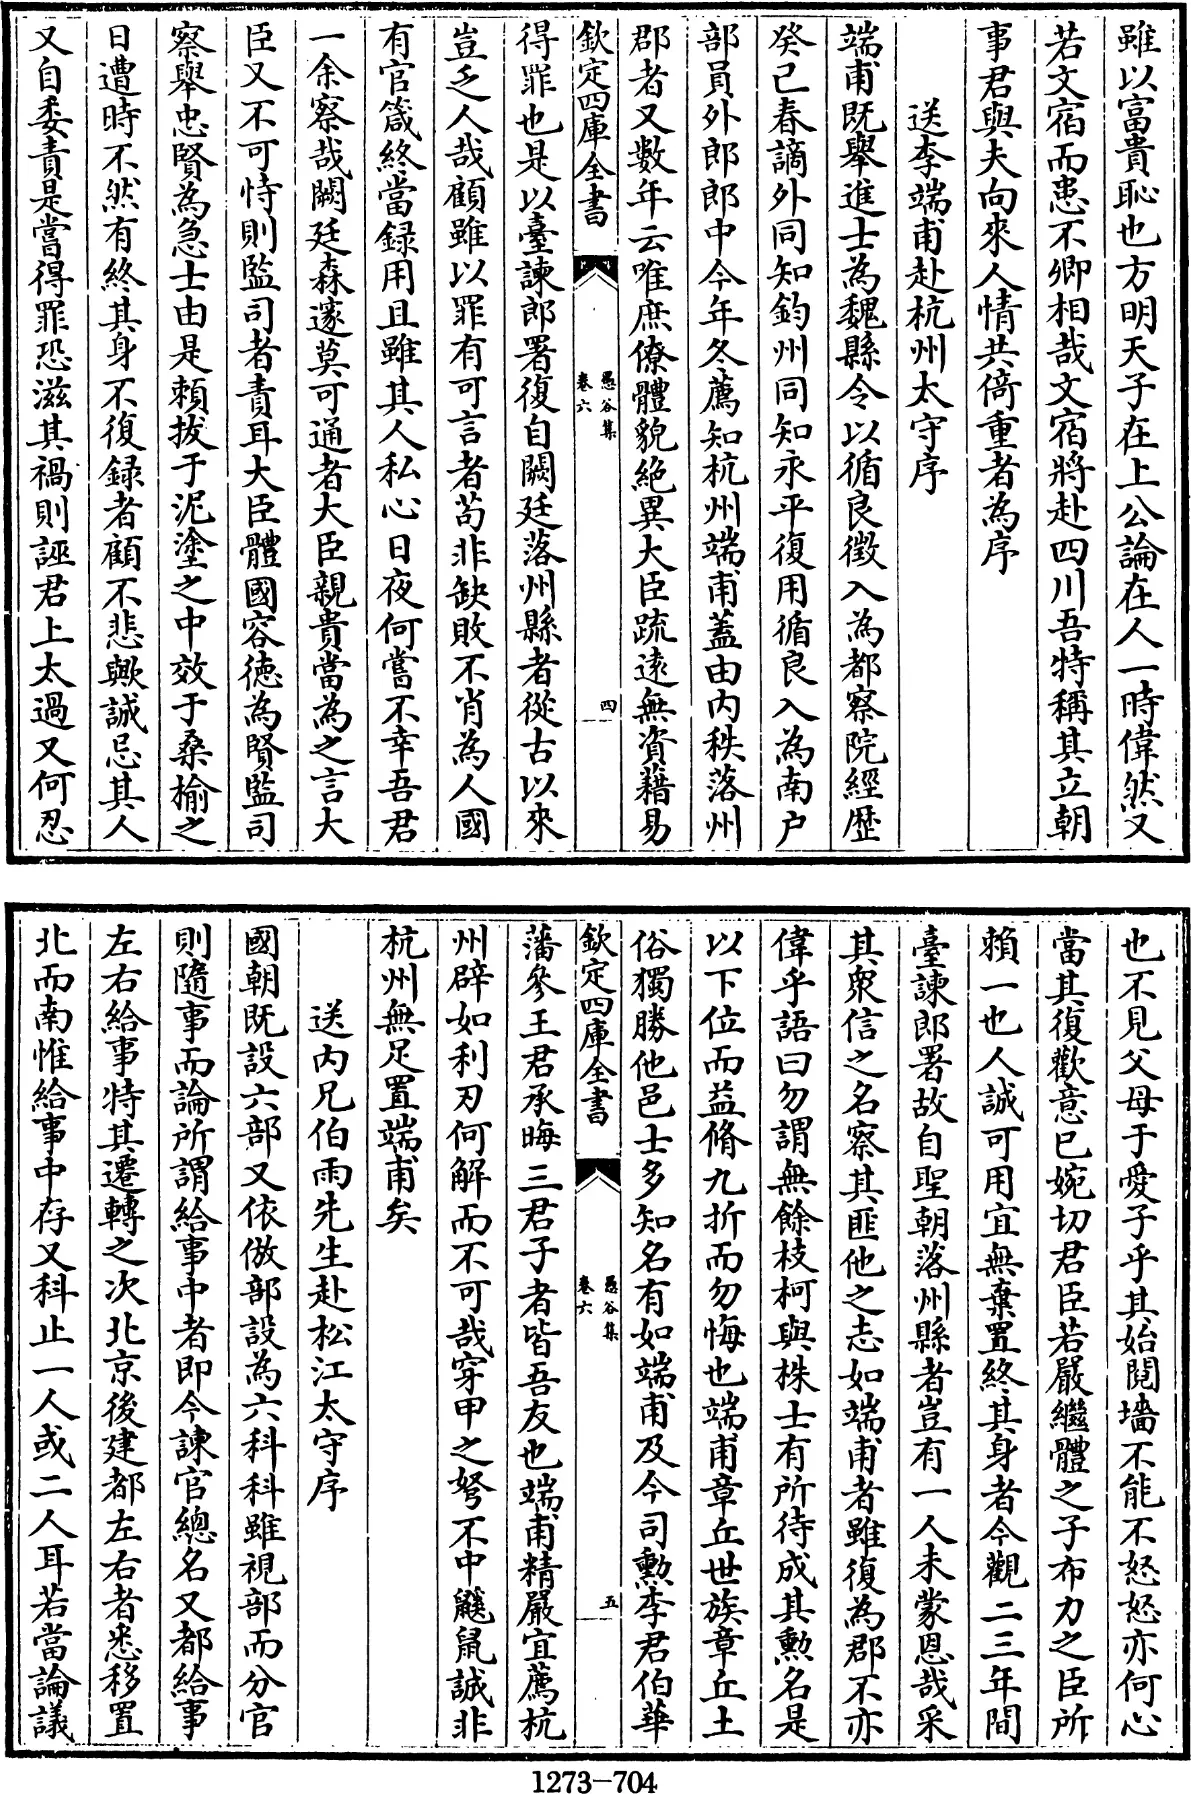 雖以富貴恥也方明天子在上公論在人一時偉然又
若文宿而患不卿相哉文宿將赴四川吾特稱其立朝
事君與夫向來人情共倚重者為序
送李端甫赴杭州太守序
端甫既舉進士為魏縣令以循良徴入為都察院經歴
癸已春謫外同知鈞州同知永平復用循良入為南户
部員外郎郎中今年冬薦知杭州端甫蓋由内秩落州
郡者又數年云唯庶僚體貌絶異大臣疏逺無資藉易
欽定四庫全書
愚谷集
卷六
四
得罪也是以臺諫郎署復自闕廷落州縣者從古以來
豈乏人哉顧雖以罪有可言者茍非缺敗不肖為人國
有官箴終當録用且雖其人私心日夜何嘗不幸吾君
一余察哉闕廷森邃莫可通者大臣親貴當為之言大
臣又不可恃則監司者責耳大臣體國容徳為賢監司
察舉忠賢為急士由是頼拔于泥塗之中效于桑榆之
日遭時不然有終其身不復録者顧不悲歟誠忌其人
又自委責是嘗得罪恐滋其禍則誣君上太過又何忍
也不見父母于愛子乎其始鬩墻不能不怒怒亦何心
當其復歡意已婉切君臣若嚴繼體之子布力之臣所
賴一也人誠可用宜無棄置終其身者今觀二三年間
臺諫郎署故自聖朝落州縣者豈有一人未蒙恩哉采
其衆信之名察其匪他之志如端甫者雖復為郡不亦
偉乎語曰勿謂無餘枝柯與株士有所待成其勲名是
以下位而益脩九折而勿悔也端甫章丘世族章丘土
俗獨勝他邑士多知名有如端甫及今司勲李君伯華
欽定四庫全書
愚谷集
卷六
五
藩參王君承晦三君子者皆吾友也端甫精嚴宜薦杭
州辟如利刃何解而不可哉穿甲之弩不中鼷鼠誠非
杭州無足置端甫矣
送内兄伯雨先生赴松江太守序
國朝既設六部又依倣部設為六科科雖視部而分官
則隨事而論所謂給事中者即今諫官總名又都給事
左右給事特其遷轉之次北京後建都左右者悉移置
北而南惟給事中存又科止一人或二人耳若當論議
1273-704